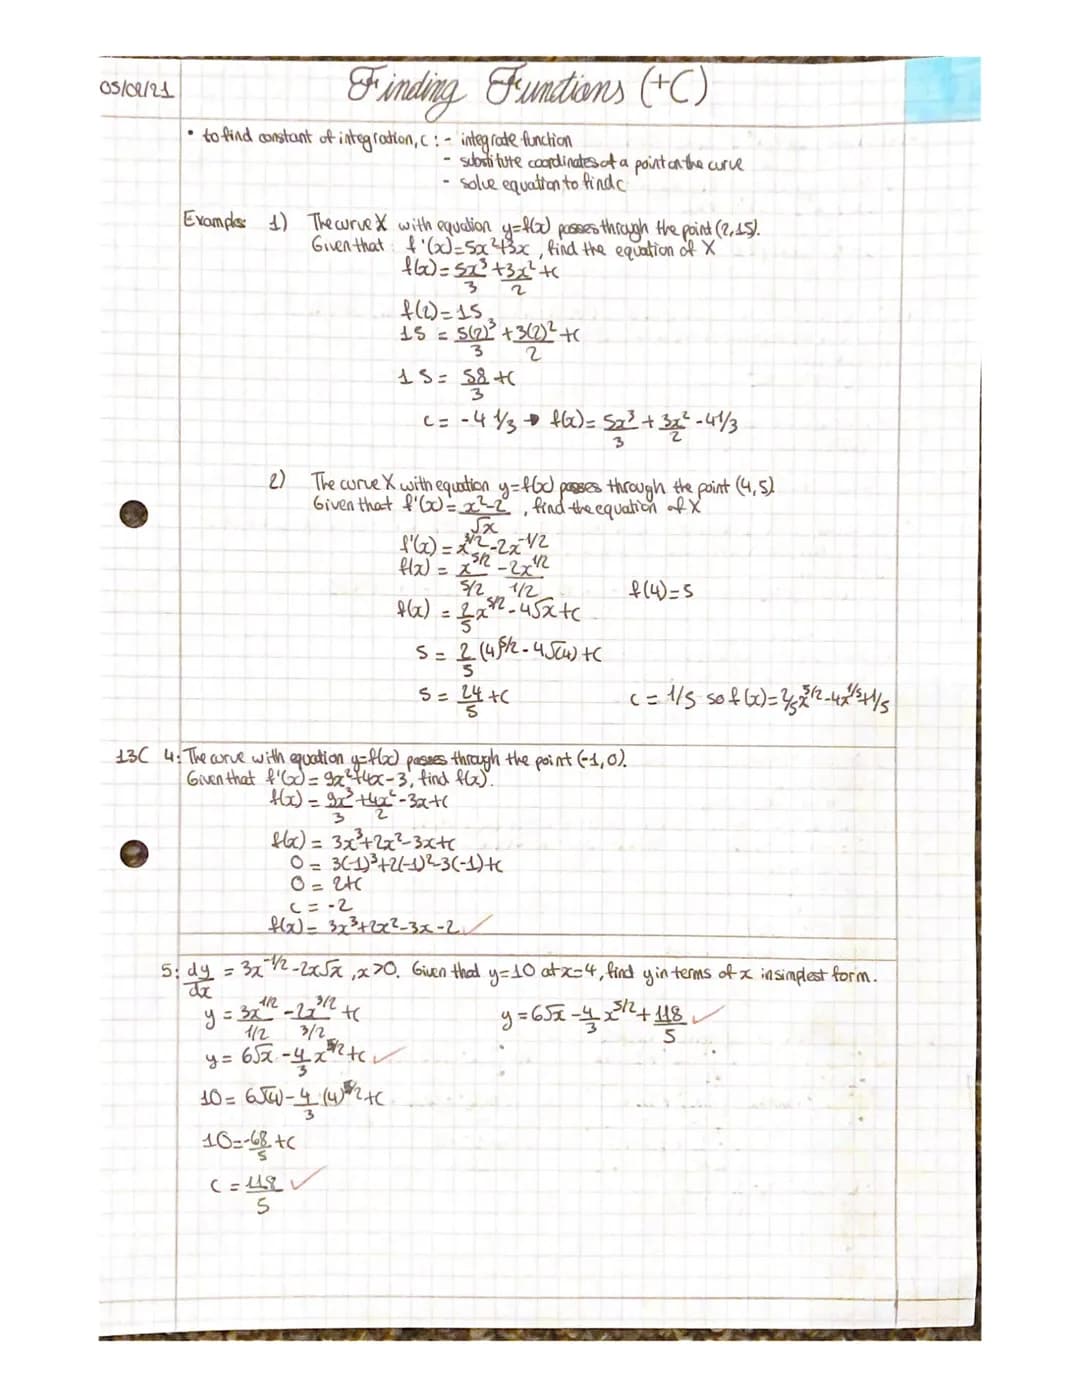 05/02/21
Finding Functions (+C)
• to find constant of integration, c : - integrate function
- substitute coordinates of a point on the curve
- solve equation to find c
Examples 1) The curve X with equation y=f(x) passes through the point (2,15).
Given that f'(x)=5x²+3x, find the equation of X
f(x)= 5x³/3 + 3x²/2 +c
f(2)=15
15 = 5(2)³/3 + 3(2)²/2 +c
15 = 58/3 +c
c = -4 1/3 → f(x)= 5x³/3 + 3x²/2 - 4 1/3
2) The curve X with equation y=f(x) passes through the point (4,5)
Given that f'(x)= x²-2/√x, find the equation of X
f'(x) = x^3/2 - 2x^-1/2
f(x) = x^5/2/5/2 - 2x^1/2/1/2
f(4)=5
f(x) = 2/5 x^5/2 - 4√x +c
5 = 2/5 (4)^5/2 - 4√(4) +c
5 = 24/5 +c
c = 1/5 so f(x)= 2/5 x^5/2 - 4x^1/5 + 1/5
13C 4: The curve with equation y=f(x) passes through the point (-1,0).
Given that f'(x)= 9x²+4x-3, find f(x).
f(x) = 9x³/3 + 4x²/2 - 3x +c
f(x) = 3x³+2x²-3x+c
0 = 3(-1)³+2(-1)²-3(-1)+c
0 = 2+c
c = -2
f(x) = 3x³+2x²-3x-2 ✓
5: dy/dx = 3x^-1/2 - 2x√x, x>0. Given that y=10 at x=4, find y in terms of x in simplest form.
y = 3x^1/2/1/2 - 2x^3/2/3/2 +c
y = 6√x - 4/3 x^5/2 + 118/5 ✓
y = 6√x - 4/3 x^5/2 +c ✓
10 = 6√(4) - 4/3 (4)^5/2 +c
10 = -68/5 +c
c = 118/5 ✓